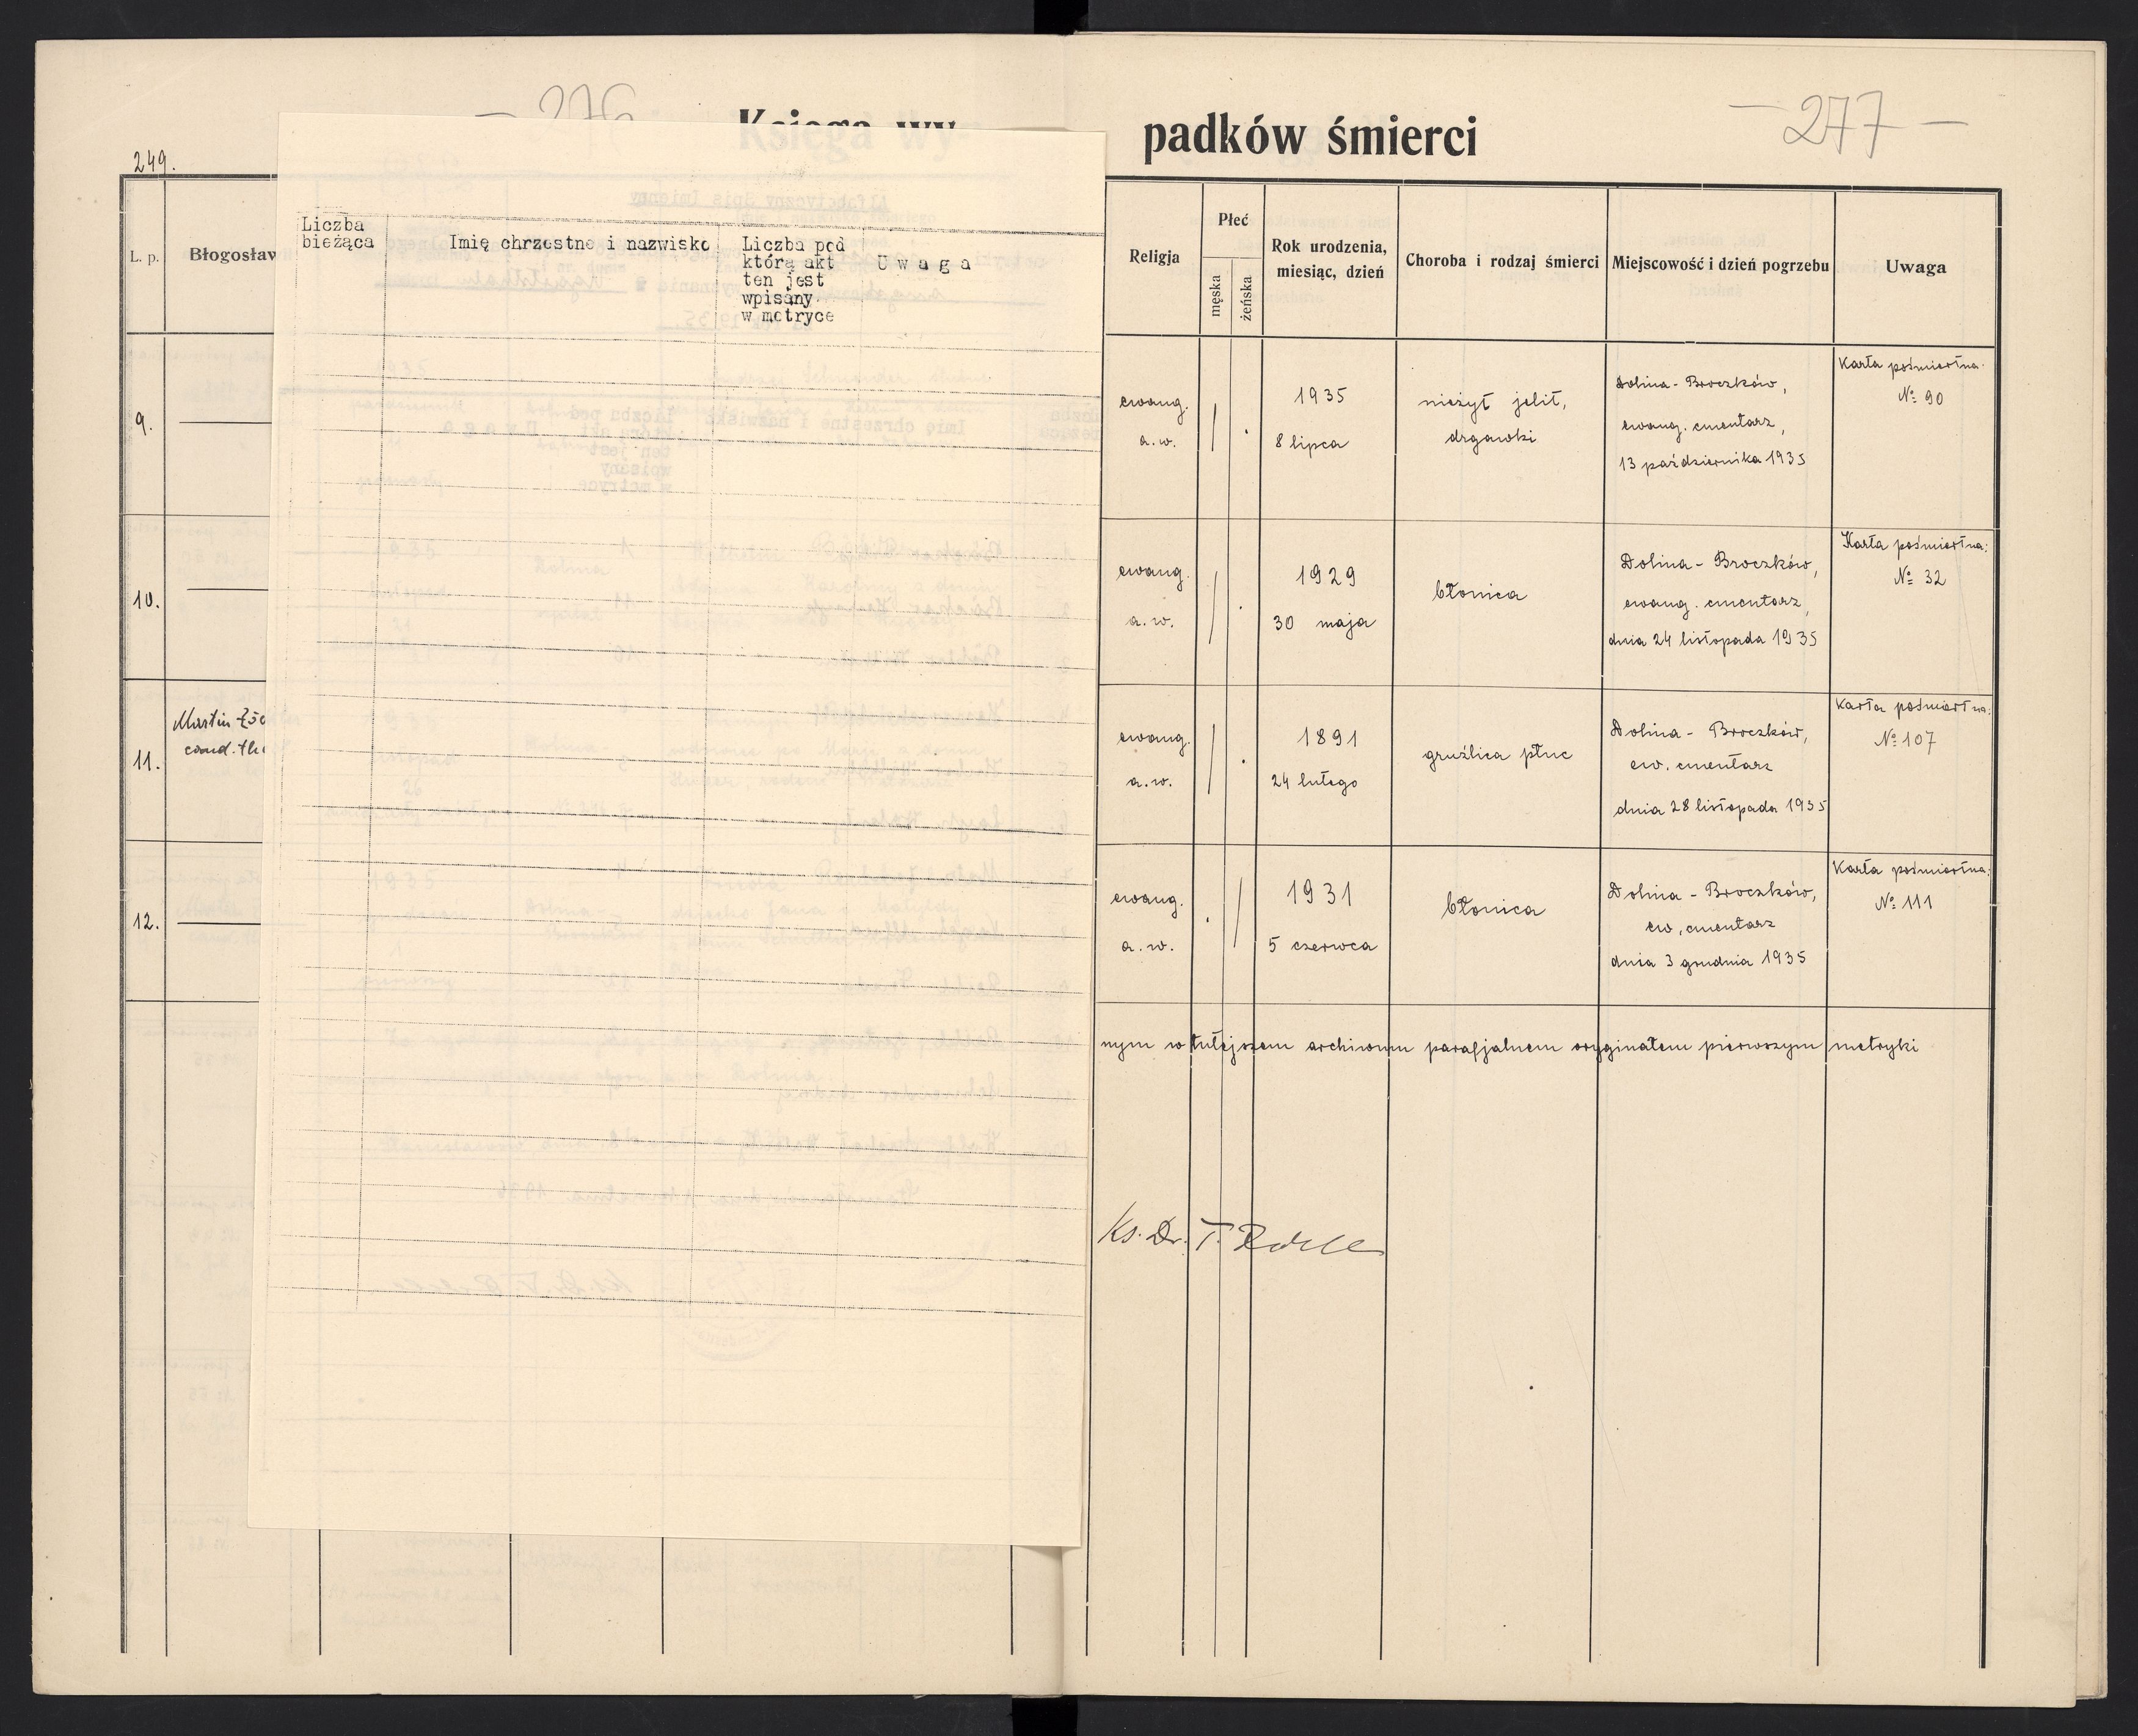 – 276
Księga wy-
padków śmierci
– 277 –
249.
L. p.
Błogosław
Liczba
bieżąca
Imię chrzestne i nazwisko
Liczba pod
którą akt
ten jest
wpisany
w metryce
U w a g a
Religja
Płeć
męska
żeńska
Rok urodzenia,
miesiąc, dzień
Choroba i rodzaj śmierci
Miejscowość i dzień pogrzebu
Uwaga
9.
ewang.
a.w.
1935
8 lipca
nieżyt jelit,
drgawki
Dolina - Broczków,
ewang. cmentarz,
13 października 1935
Karta pośmiertna:
№ 90
10.
ewang.
a.w.
1929
30 maja
błonica
Dolina - Broczków,
ewang. cmentarz,
dnia 24 listopada 1935
Karta pośmiertna:
№ 32
11.
Martin
cand.
ewang.
a.w.
1891
24 lutego
gruźlica płuc
Dolina - Broczków,
ew. cmentarz
dnia 28 listopada 1935
Karta pośmiertna:
№ 107
12.
ewang.
a.w.
1931
5 czerwca
błonica
Dolina - Broczków,
ew. cmentarz
dnia 3 grudnia 1935
Karta pośmiertna:
№ 111
nym w tutejszem archiwum parafjalnem oryginałem pierwszym metryki
Ks. Dr. T.